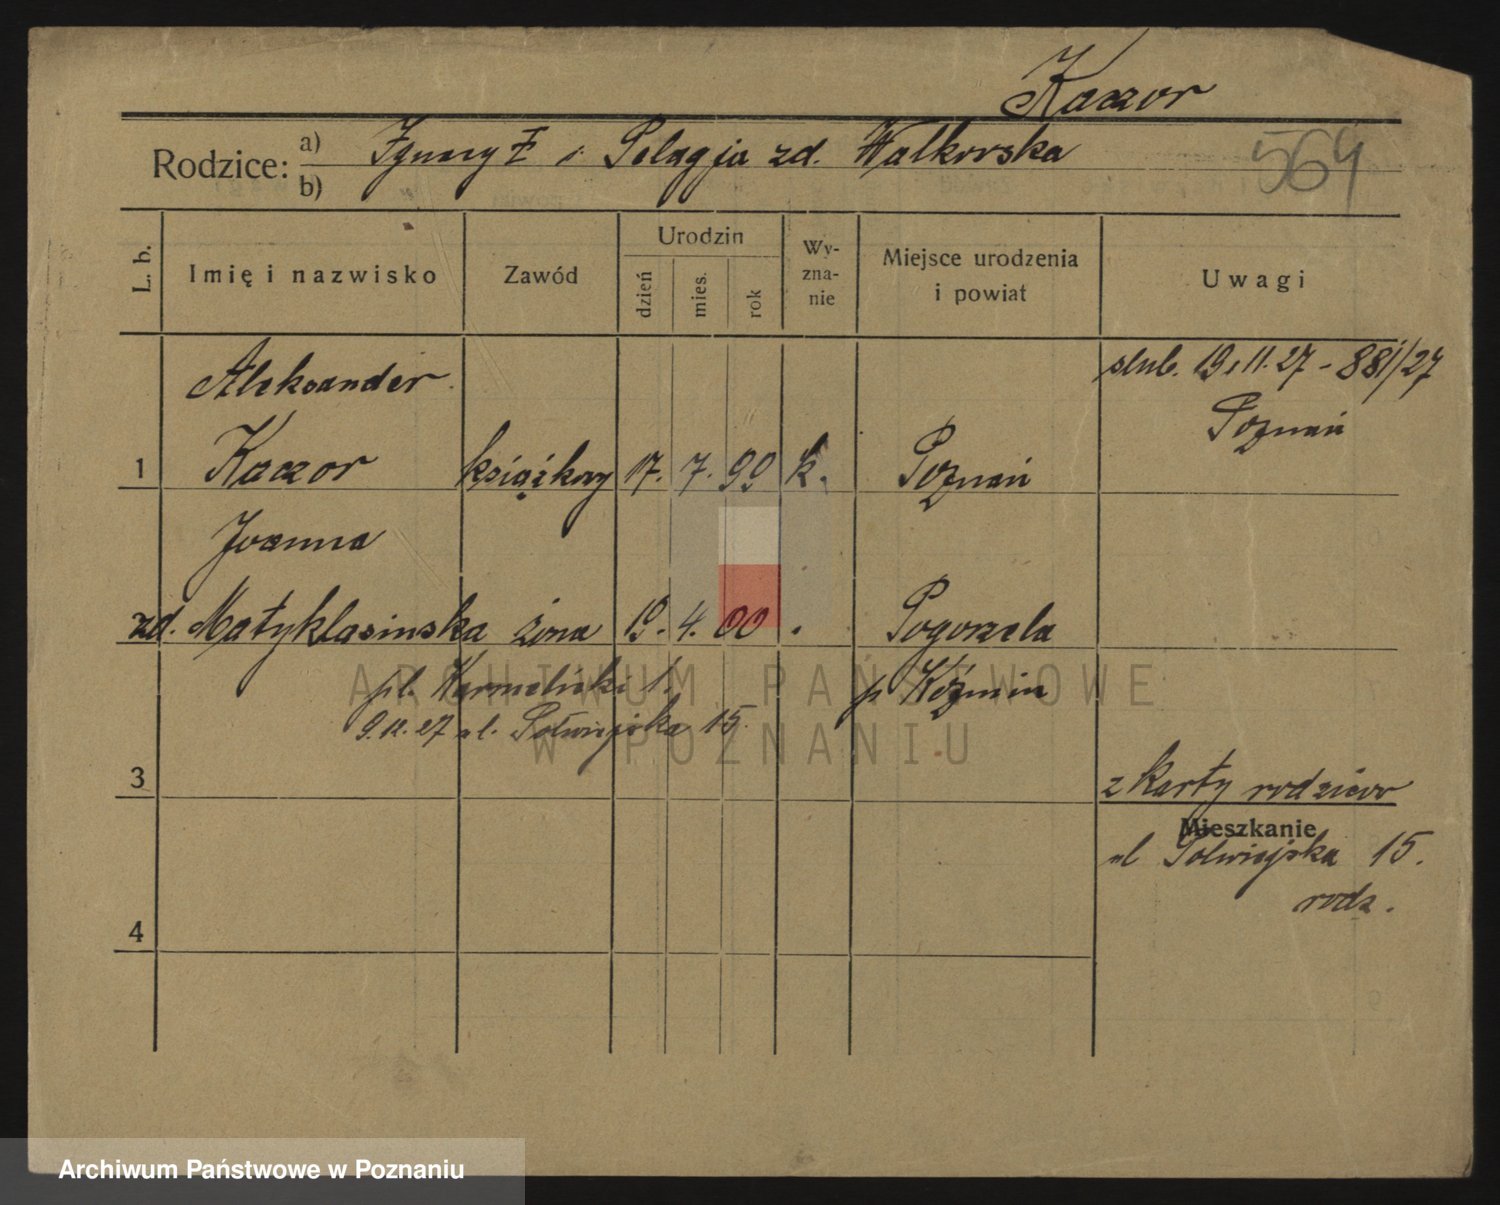 Kaczor
Rodzice: a) Ignacy i Pelagja zd. Walkowska
b)
564
L. b. Imię i nazwisko Zawód Urodzin dzień mies. rok Wy-zna-nie Miejsce urodzenia i powiat Uwagi
ślub. 19.11.27 - 881/27
Poznań
Aleksander
1 Kaczor książkowy 17. 7. 99 k. Poznań
Joanna
2 zd. Matyklasinska żona 19. 4. 00 . Pogorzela
pl. Karmelicki 1. p Koźmin
9.12.27 ul. Półwiejska 15.
3
z karty rodziców
Mieszkanie
ul Półwiejska 15.
rodz.
4
ARCHIWUM PAŃSTWOWE
W POZNANIU
Archiwum Państwowe w Poznaniu